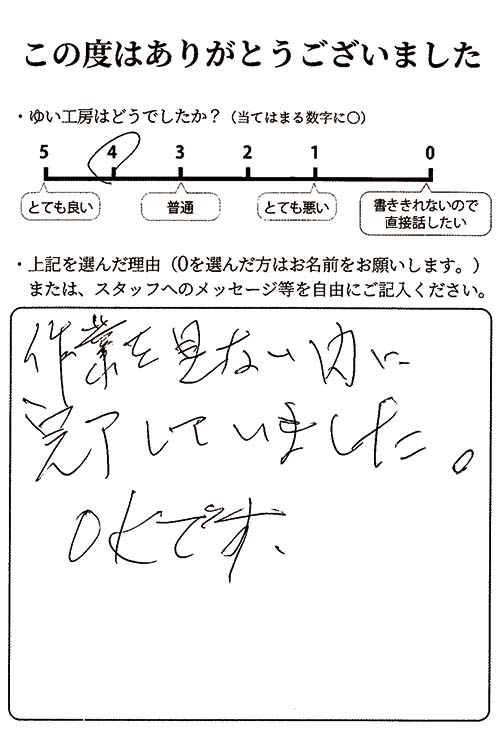 この度はありがとうございました
・ゆい工房はどうでしたか？（当てはまる数字に〇）
5 4 3 2 1 0
とても良い 普通 とても悪い 書ききれないので
直接話したい
・上記を選んだ理由（0を選んだ方はお名前をお願いします。）
または、スタッフへのメッセージ等を自由にご記入ください。
作業を見ない内に
完了していました。
OKです、